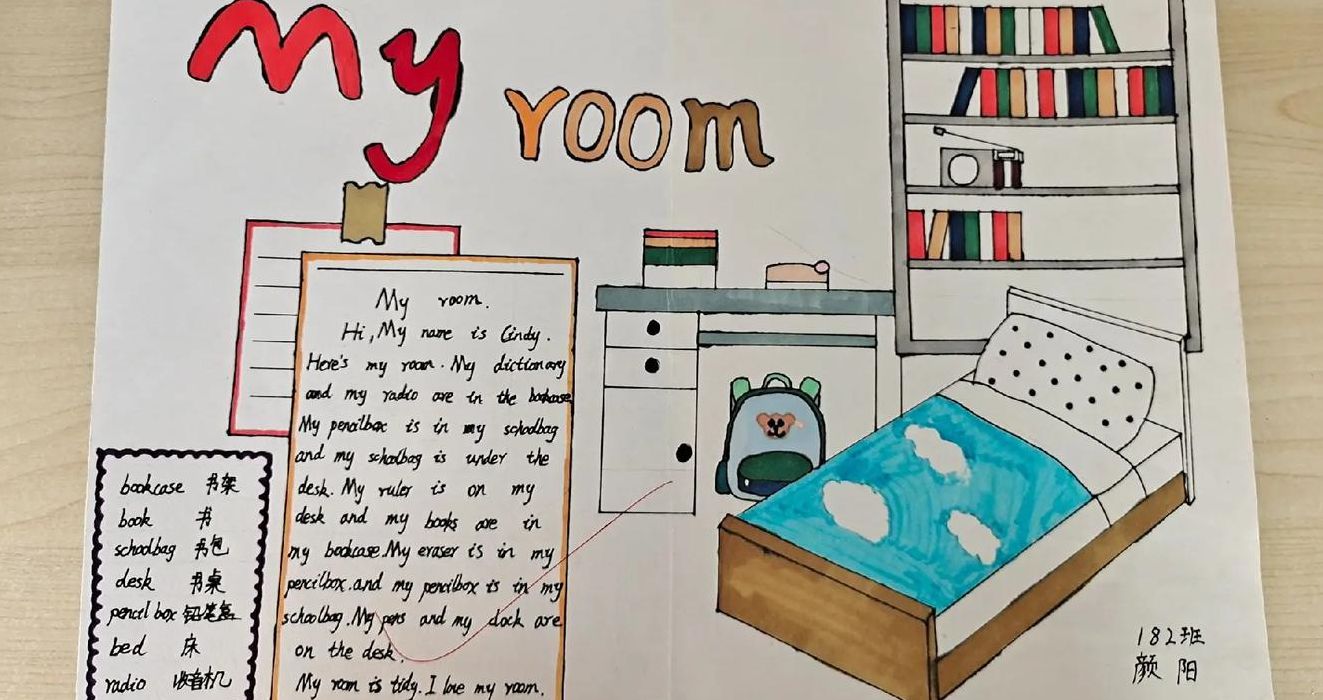 My room
My room.
Hi, My name is Cindy.
Here's my room. My dictionary
and my radio are in the bookcase
My pencilbox is in my schoolbag
and my schoolbag is under the
desk. My ruler is on my
desk and my books are in
my bookcase. My eraser is in my
pencilbox. and my pencilbox is in my
schoolbag. My pens and my clock are
on the desk.
My room is tidy. I love my room.
bookcase 书架
book 书
schoolbag 书包
desk 书桌
pencil box 铅笔盒
bed 床
radio 收音机
182班
颜阳